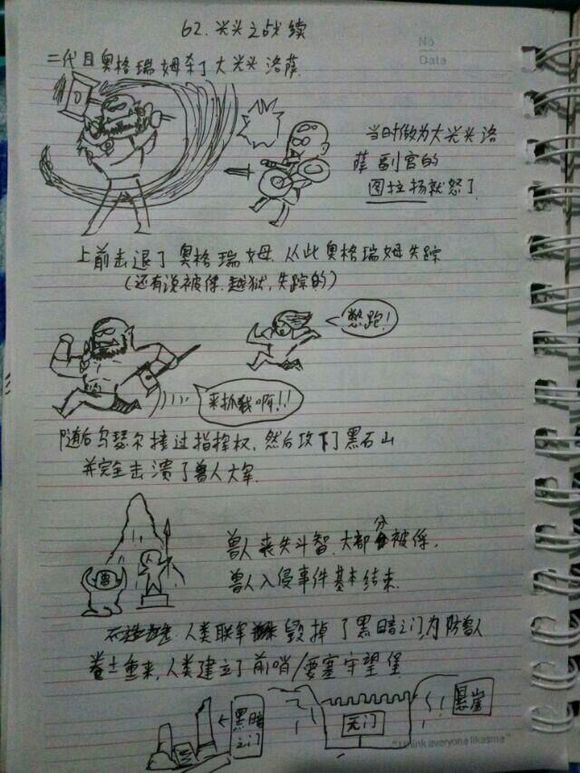 62.光头之战续
No
Date
二代目奥格瑞姆杀了大光头洛萨
当时做为大光头洛
萨副官的
图拉扬就怒了
上前击退了奥格瑞姆.从此奥格瑞姆失踪
(还有说被俘.越狱,失踪的)
憋跑!
来抓我啊!!
随后乌瑟尔接过指挥权,然后攻下黑石山
并完全击溃了兽人大军.
兽人丧失斗智.大都分被俘.
兽人入侵事件基本结束.
人类联军毁掉了黑暗之门为防兽人
卷土重来,人类建立了前哨/要塞守望堡
黑暗
之门
无门
悬崖
think everyone likes me